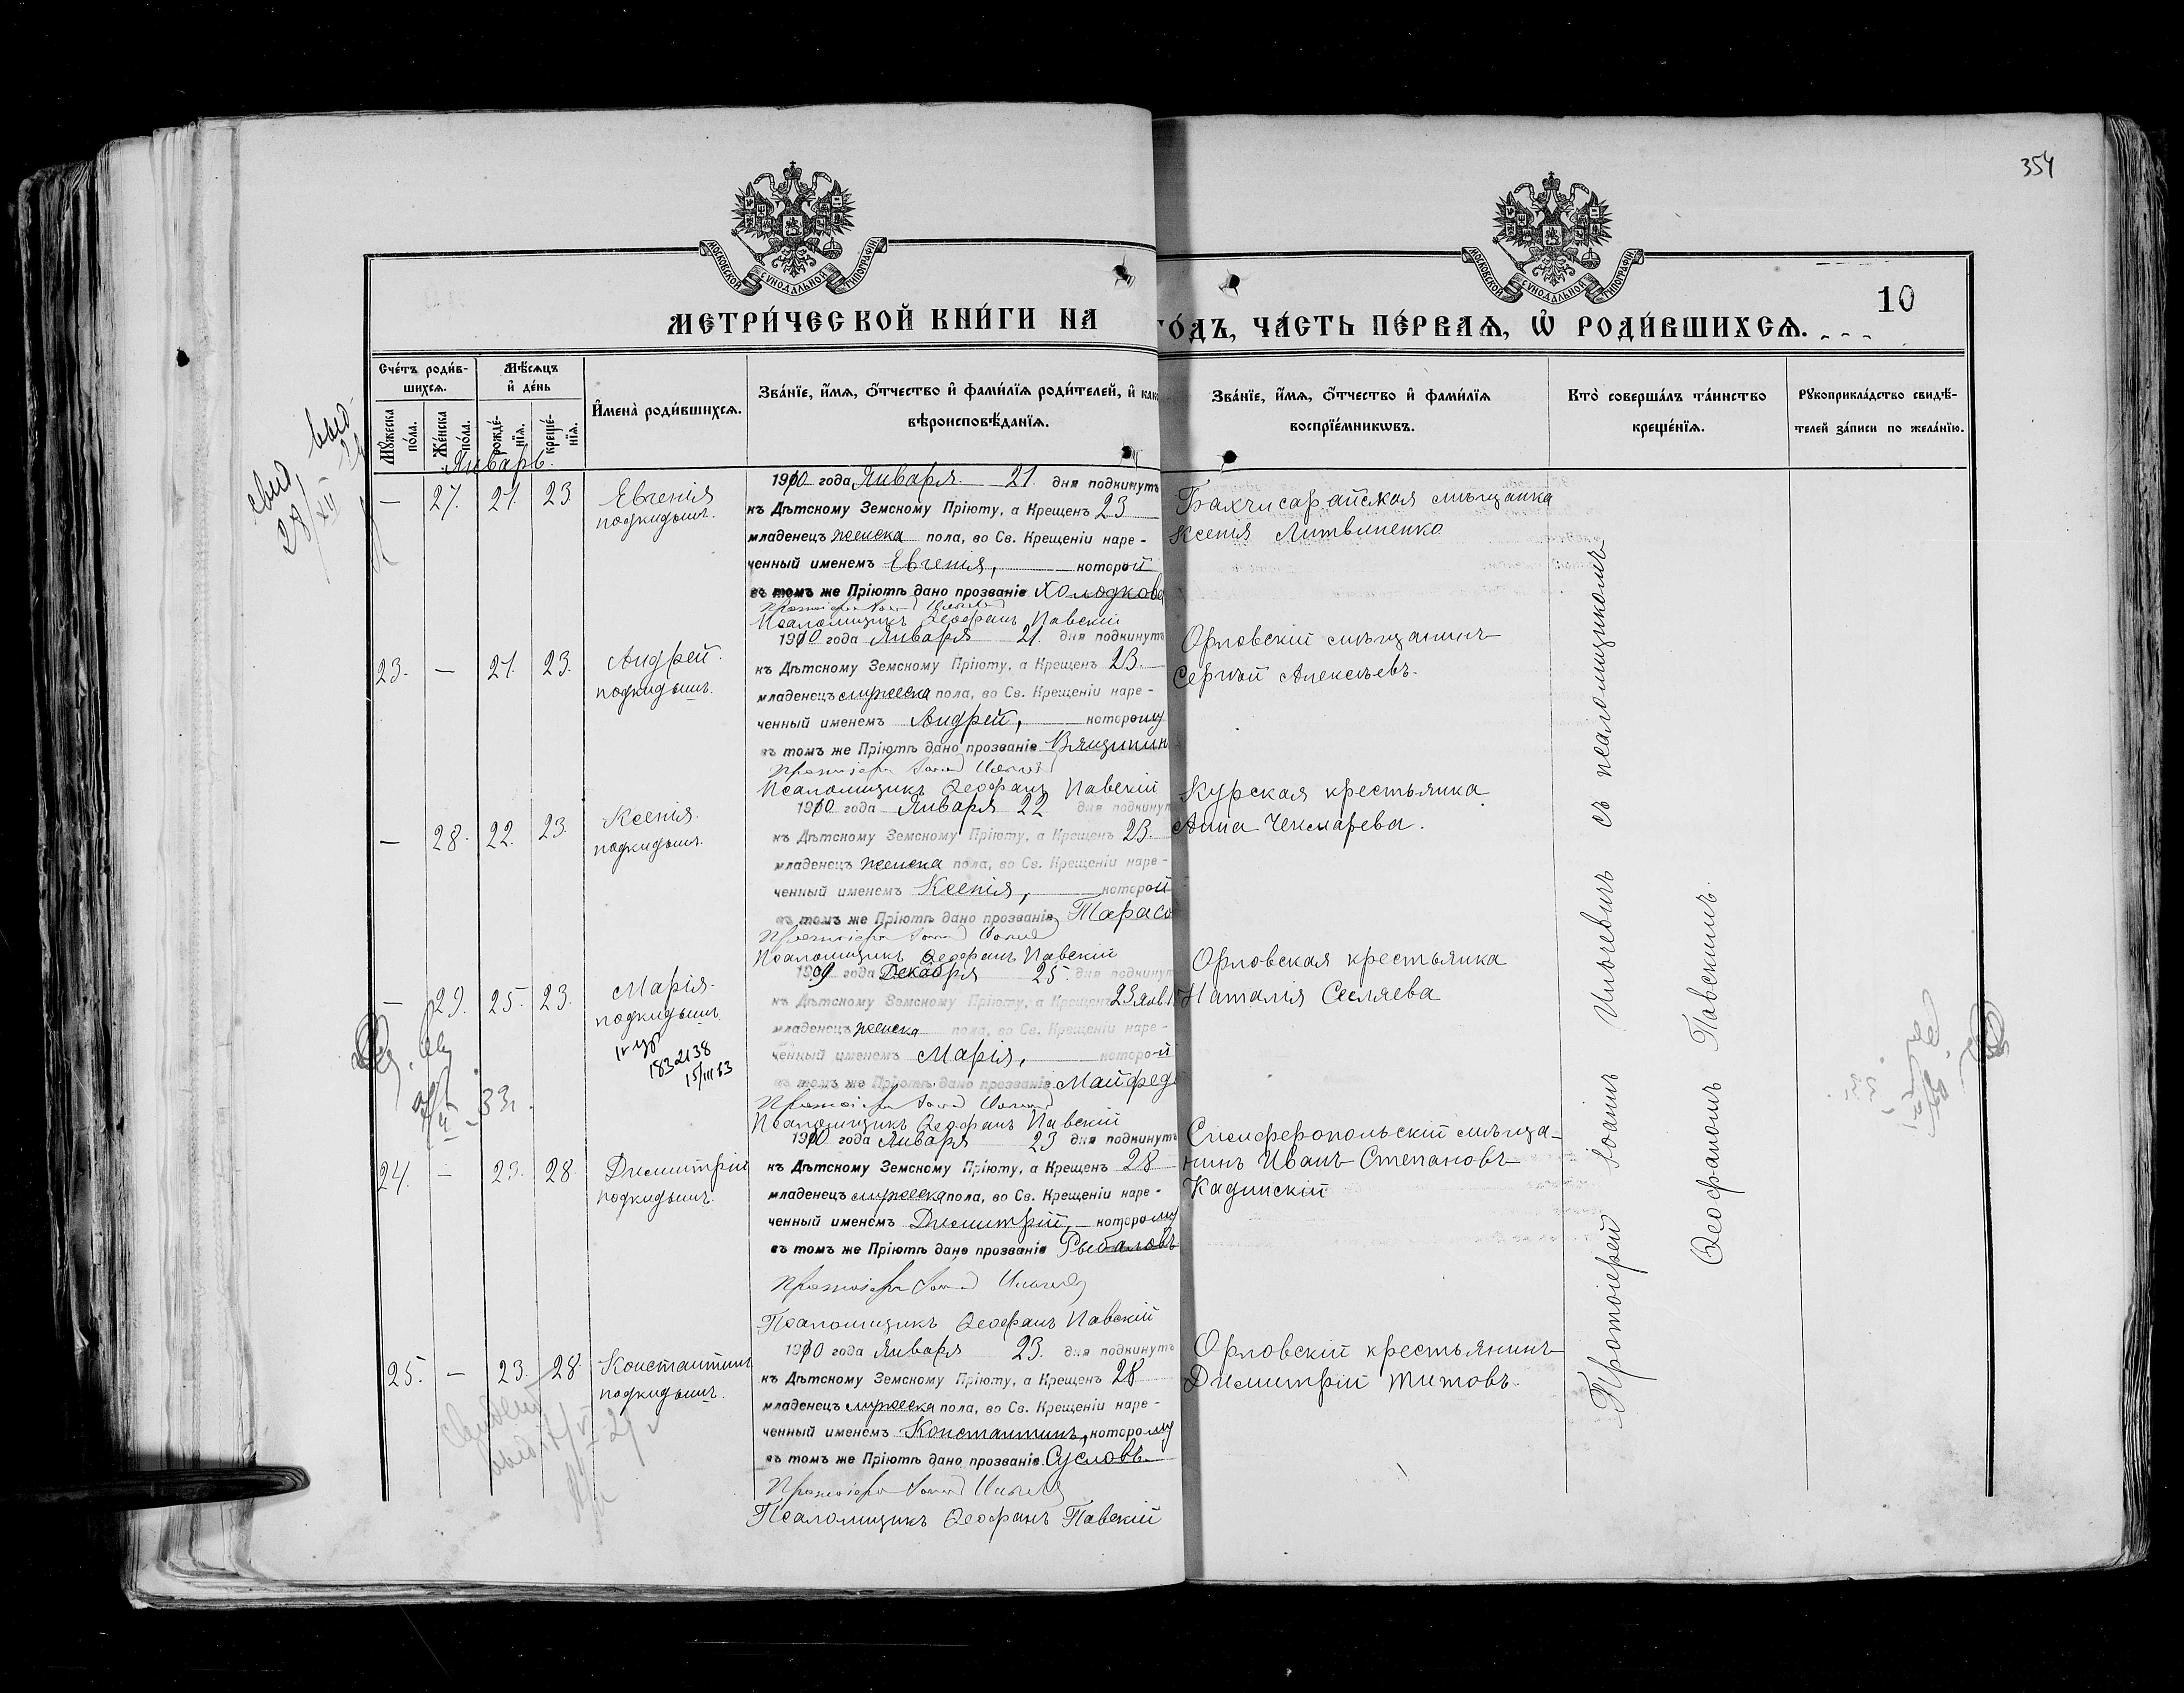 354
МОСКОВСКОЙ СУНОДАЛЬНОЙ ТИПОГРАФІИ
МОСКОВСКОЙ СУНОДАЛЬНОЙ ТИПОГРАФІИ
10
МЕТРИ́ЧЕСКОЙ КНИ́ГИ НА ГО́ДЪ, ЧА́СТЬ ПЕ́РВАѦ, Ѡ҆ РОДИ́ВШИХСѦ.
Сче́тъ роди́в-
шихсѧ.
Мѣ́сѧцъ
и҆ де́нь
Мꙋ́жеска по́ла.
Же́нска по́ла.
рожде́-нїѧ.
креще́-нїѧ.
И҆мена̀ роди́вшихсѧ.
Зва́нїе, и҆́мѧ, ѻ҆́тчество и҆ фами́лїѧ роди́телей, и҆ како
вѣроисповѣ́данїѧ.
Зва́нїе, и҆́мѧ, ѻ҆́тчество и҆ фами́лїѧ
воспрїе́мникѡвъ.
Кто̀ соверша́лъ та́инство
креще́нїѧ.
Рꙋкоприкла́дство свидѣ́-
телей за́писи по жела́нїю.
Январь.
— 27. 21. 23 Евгенія
подкидышъ.
1910 года Января 21 дня подкинутъ
къ Дѣтскому Земскому Пріюту, а Крещенъ 23
младенецъ женска пола, во Св. Крещеніи наре-
ченный именемъ Евгенія, которой
въ томъ же Пріютѣ дано прозваніе Холодкова
Протоіерей Іоаннъ Ильичевъ
Псаломщикъ Ѳеофанъ Павскій
Бахчисарайская мѣщанка
Ксенія Литвиненко
23. — 21. 23. Андрей.
подкидышъ.
1910 года Января 21. дня подкинутъ
къ Дѣтскому Земскому Пріюту, а Крещенъ 23.
младенецъ мужеска пола, во Св. Крещеніи наре-
ченный именемъ Андрей, которому
въ томъ же Пріютѣ дано прозваніе
Протоіерей Іоаннъ Ильичевъ
Псаломщикъ Ѳеофанъ Павскій
Орловскій мѣщанинъ
Сергѣй Алексѣевъ.
— 28. 22. 23. Ксенія.
подкидышъ.
1910 года Января 22 дня подкинут
къ Дѣтскому Земскому Пріюту, а Крещенъ 23.
младенецъ женска пола, во Св. Крещеніи наре-
ченный именемъ Ксенія, которой
въ томъ же Пріютѣ дано прозваніе Тарасо
Протоіерей Іоаннъ Ильичевъ
Псаломщикъ Ѳеофанъ Павскій
Курская крестьянка
Анна Чекмарева.
— 29. 25. 23. Марія.
подкидышъ
1832138
15/III 63
1909 года Декабря 25. дня подкинут
къ Дѣтскому Земскому Пріюту, а Крещенъ 23 янв.
младенецъ женска пола, во Св. Крещеніи наре-
ченный именемъ Марія, которой
въ томъ же Пріютѣ дано прозваніе Манфред
Протоіерей Іоаннъ Ильичевъ
Псаломщикъ Ѳеофанъ Павскій
Орловская крестьянка
Наталія Сесляева
24. — 23. 28. Димитрій
подкидышъ.
1910 года Января 23 дня подкинутъ
къ Дѣтскому Земскому Пріюту, а Крещенъ 28
младенецъ мужеска пола, во Св. Крещеніи наре-
ченный именемъ Димитрій, которому
въ томъ же Пріютѣ дано прозваніе Рыбаловъ
Протоіерей Іоаннъ Ильичевъ
Псаломщикъ Ѳеофанъ Павскій
Симферопольскій мѣща-
нинъ Иванъ Степановъ
Кадинскій
25. — 23. 28 Константинъ
подкидышъ.
1910 года Января 23. дня подкинутъ
къ Дѣтскому Земскому Пріюту, а Крещенъ 28
младенецъ мужеска пола, во Св. Крещеніи наре-
ченный именемъ Константинъ, которому
въ томъ же Пріютѣ дано прозваніе Сусловъ
Протоіерей Іоаннъ Ильичевъ
Псаломщикъ Ѳеофанъ Павскій
Орловскій крестьянинъ
Димитрій Титовъ.
Протоіерей Іоаннъ Ильичевъ съ псаломщикомъ
Ѳеофаномъ Павскимъ.